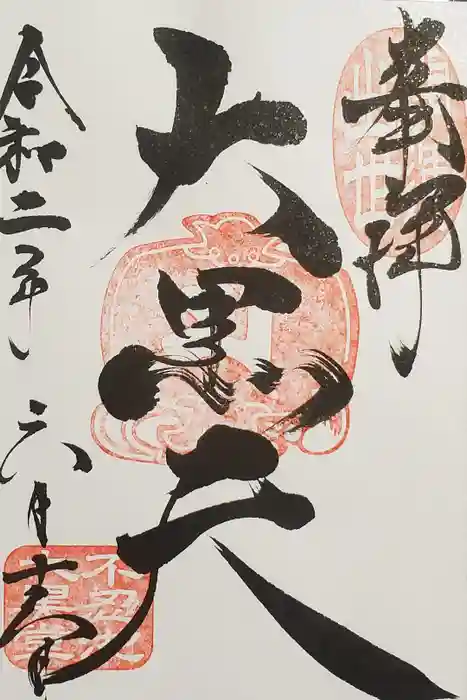 奉拝
大黒天
令和二年 六月十六日
不忍池
大黒堂